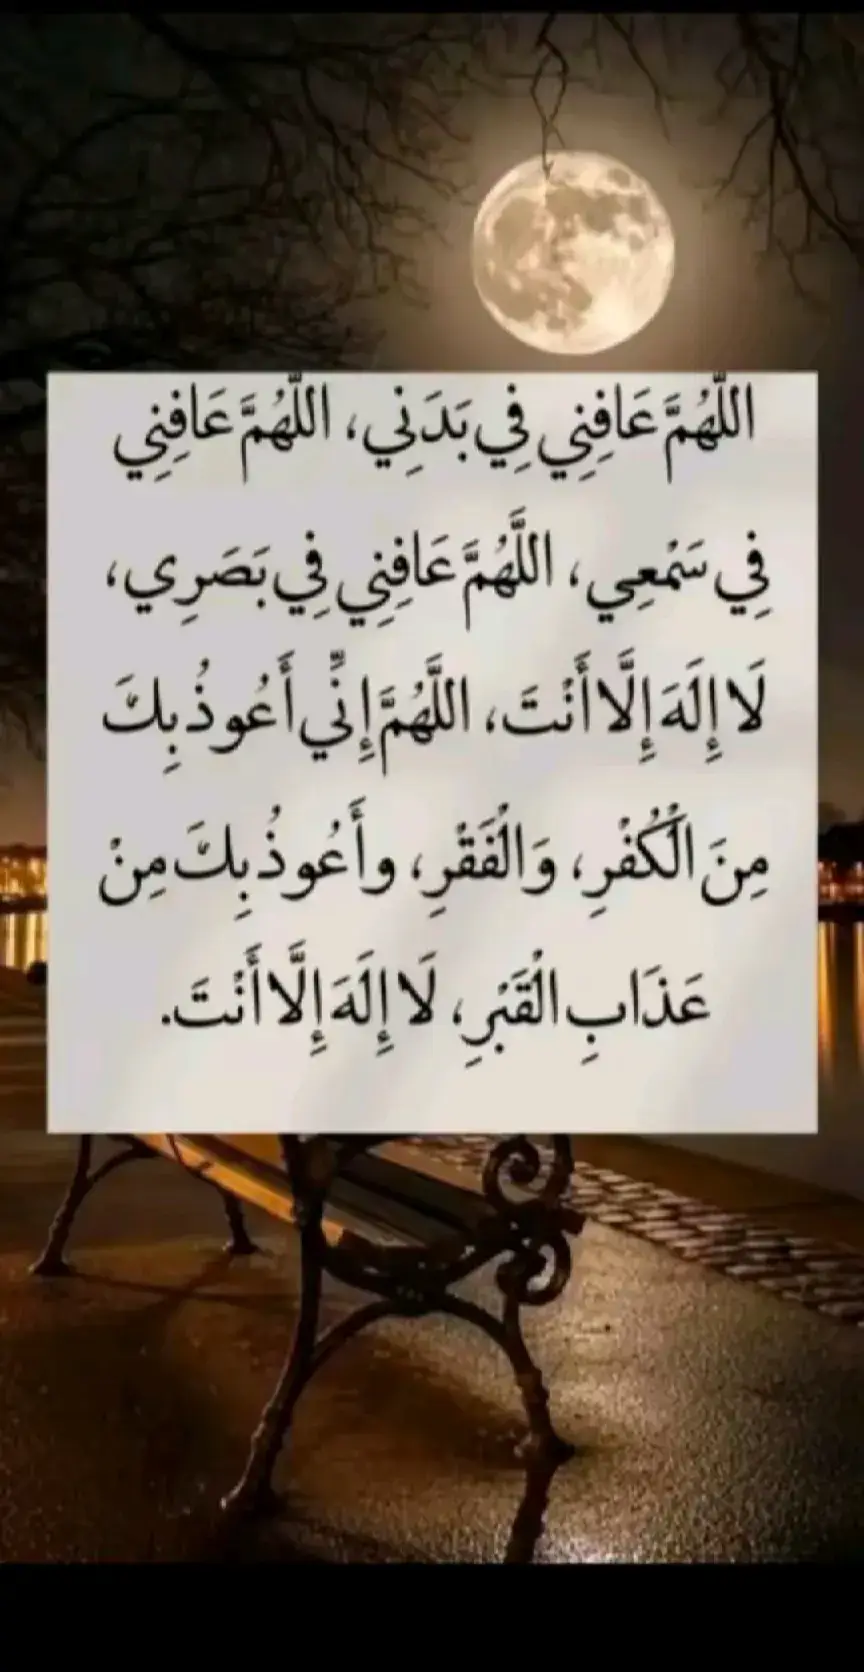 اللَّهُمَّ عَافِنِي فِي بَدَنِي، اللَّهُمَّ عَافِنِي
فِي سَمْعِي، اللَّهُمَّ عَافِنِي فِي بَصَرِي،
لَا إِلَهَ إِلَّا أَنْتَ، اللَّهُمَّ إِنِّي أَعُوذُ بِكَ
مِنَ الْكُفْرِ، وَالْفَقْرِ، وأَعُوذُ بِكَ مِنْ
عَذَابِ الْقَبْرِ، لَا إِلَهَ إِلَّا أَنْتَ.